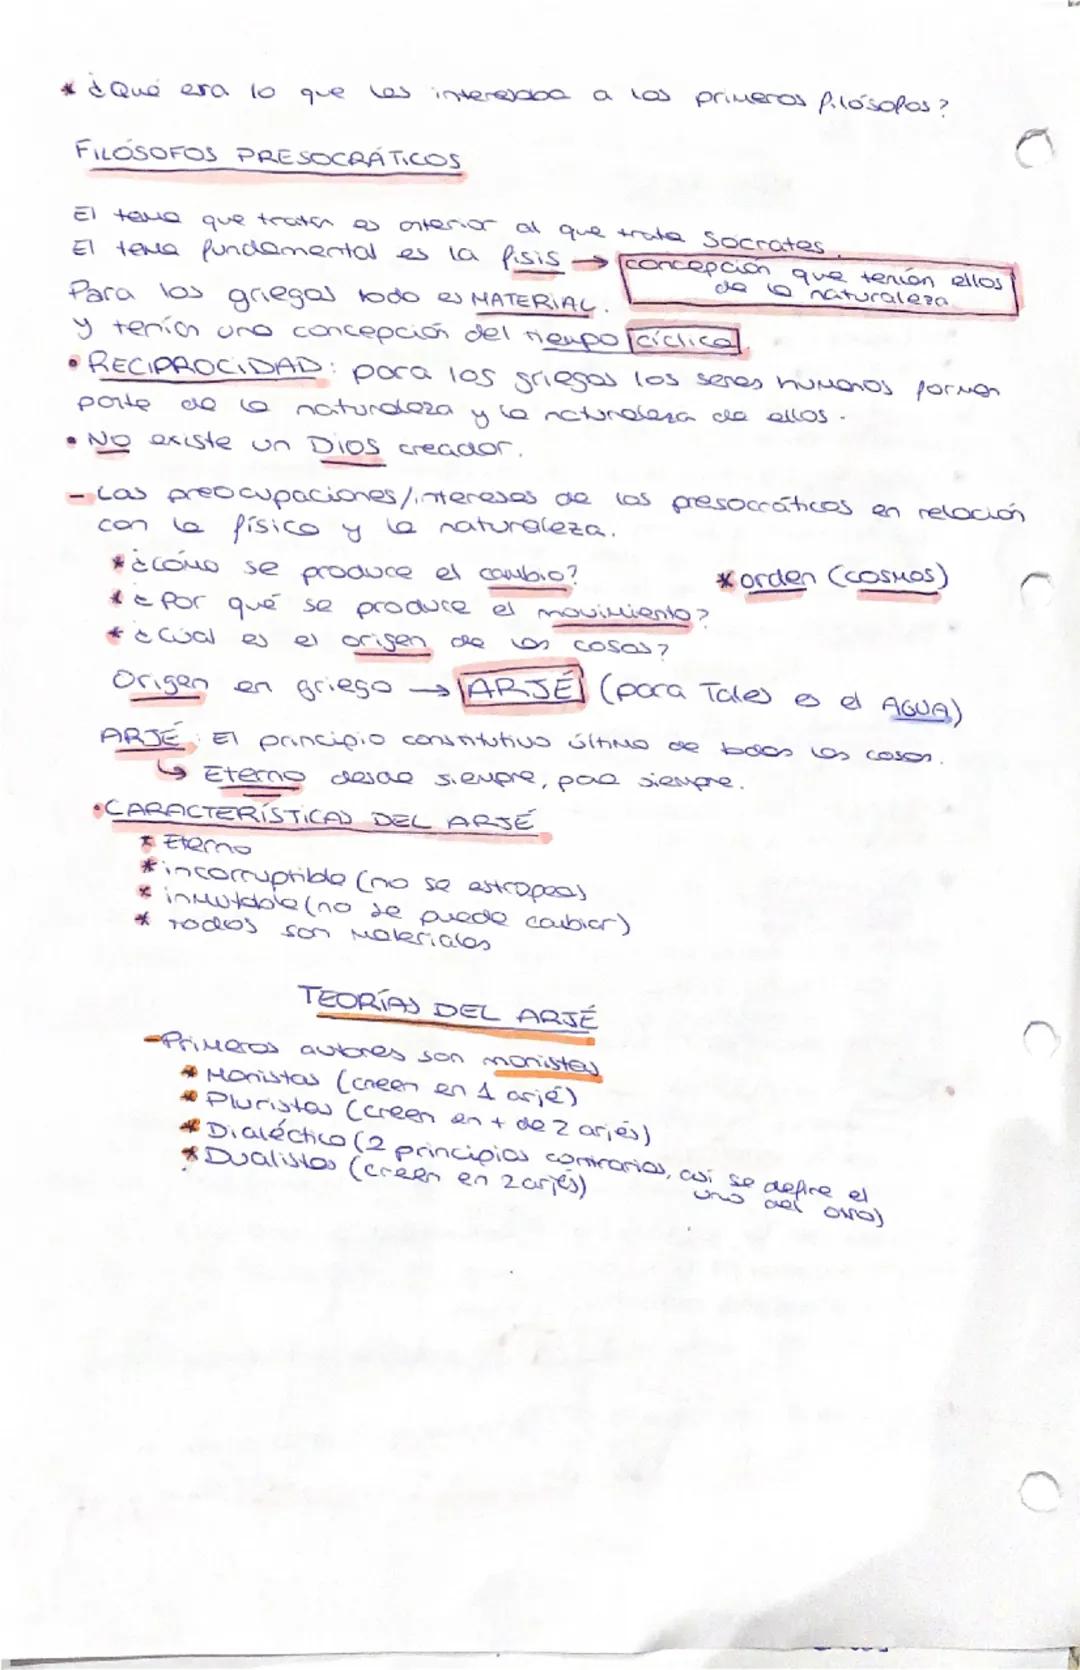 * ¿Qué era lo que les interesaba a los primeros filósofos?
FILÓSOFOS PRESOCRÁTICOS
El tema que tratan es anterior al que trata Sócrates.
El tema fundamental es la fisis → concepción que tenían ellos
de la naturaleza.
Para los griegos todo es MATERIAL.
y tenían una concepción del tiempo cíclica.
• RECIPROCIDAD: para los griegos los seres humanos forman
parte de la naturaleza y la naturaleza de ellos.
• NO existe un DIOS creador.
- Las preocupaciones/intereses de los presocráticos en relación
con la física y la naturaleza.
* ¿cómo se produce el cambio? * orden (cosmos)
* ¿Por qué se produce el movimiento?
* ¿Cuál es el origen de las cosas?
Origen en griego → ARJÉ (para Tales es el AGUA)
ARJÉ: El principio constitutivo último de todas las cosas.
↳ Eterno desde siempre, para siempre.
• CARACTERÍSTICAS DEL ARJÉ
* Eterno
* incorruptible (no se estropea)
* inmutable (no se puede cambiar)
* Todos son materiales
TEORÍAS DEL ARJÉ
- Primeros autores son monistas
* Monistas (creen en 1 arjé)
* Pluristas (creen en + de 2 arjés)
* Dialéctico (2 principios contrarios, así se define el
uno del otro)
* Dualistas (creen en 2 arjés)